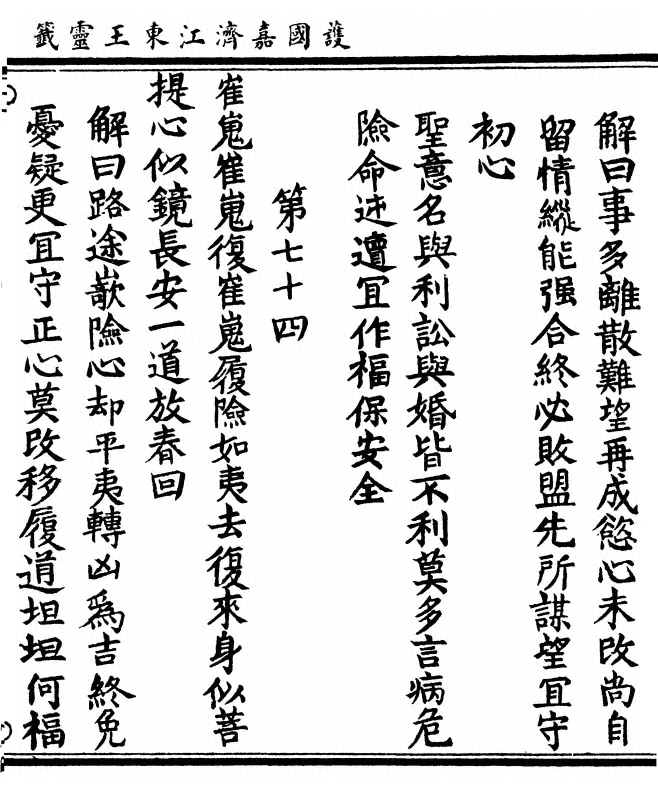 護國嘉濟江東王靈籤
解曰事多離散難望再成慾心未改尚自
留情縱能强合終必敗盟先所謀望冝守
初心
聖意名與利訟與婚皆不利莫多言病危
險命迍邅冝作福保安全
第七十四
崔嵬崔嵬復崔嵬履險如夷去復來身似菩
提心似鏡長安一道放春回
解曰路途嶔險心却平夷轉凶爲吉終免
憂疑更冝守正心莫改移履道坦坦何福